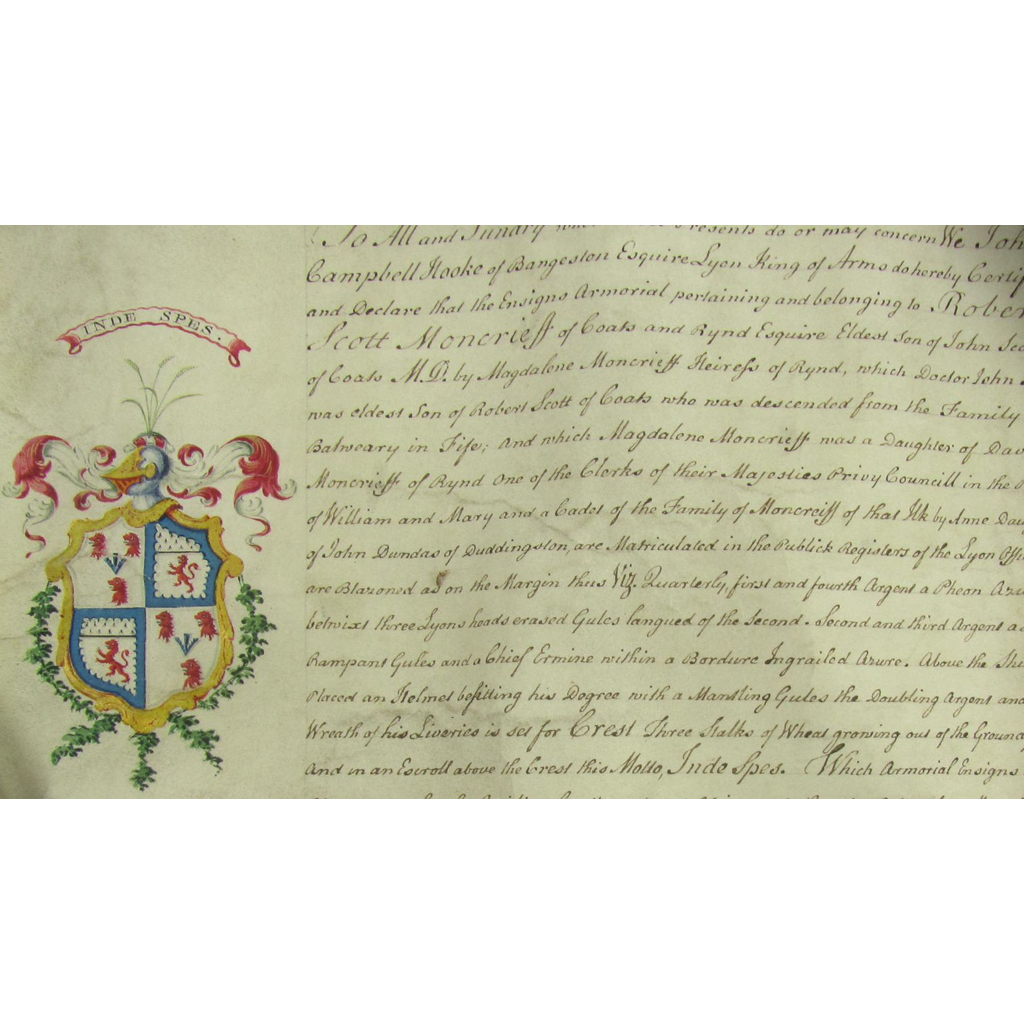 INDE SPES.
To All and Sundry Presents do or may concern We Joh
Campbell Hooke of Bangeston Esquire Lyon King of Arms do hereby Certif
and Declare that the Ensigns Armorial pertaining and belonging to Rober
Scott Moncrieff of Coats and Rynd Esquire Eldest Son of John Sco
of Coats M.D. by Magdalene Moncrieff Heiress of Rynd, which Doctor John
was eldest Son of Robert Scott of Coats who was descended from the Family
Balweary in Fife; and which Magdalene Moncrieff was a Daughter of Dav
Moncrieff of Rynd one of the Clerks of their Majesties Privy Councill in the
of William and Mary and a Cadet of the Family of Moncreiff of that Ilk by Anne Dau
of John Dundas of Duddingston, are Matriculated in the Publick Registers of the Lyon Offi
are Blazoned as on the Margin thus Viz. Quarterly, first and fourth Argent a Pheon Azu
betwixt three Lyons heads erased Gules langued of the Second. Second and third Argent a
Rampant Gules and a Chief Ermine within a Bordure Ingrailed Azure. Above the Shi
Placed an Helmet befitting his Degree with a Mantling Gules the Doubling Argent and
Wreath of his Liveries is set for Crest Three Stalks of Wheat growing out of the Ground
And in an Escroll above the Crest this Motto, Inde Spes. Which Armorial Ensigns